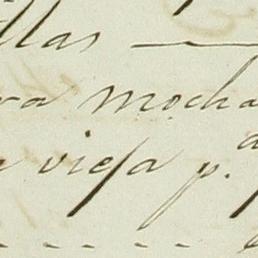 llas
va mocha
vieja p.